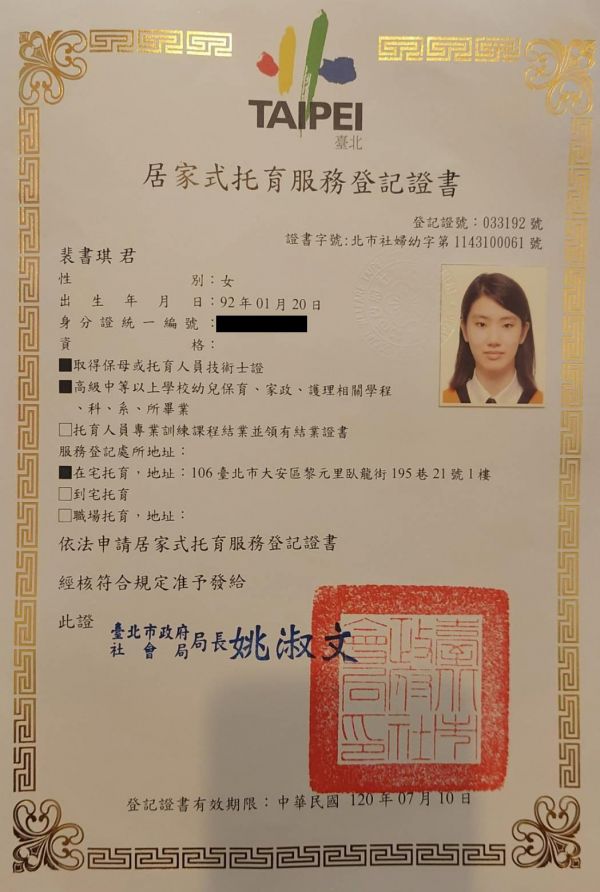 TAIPEI
臺北
居家式托育服務登記證書
登記證號：033192 號
證書字號:北市社婦幼字第 1143100061 號
裴書琪 君
性 別：女
出生年月日：92 年 01 月 20 日
身分證統一編號：
資 格：
■取得保母或托育人員技術士證
■高級中等以上學校幼兒保育、家政、護理相關學程
、科、系、所畢業
□托育人員專業訓練課程結業並領有結業證書
服務登記處所地址：
■在宅托育，地址：106 臺北市大安區黎元里臥龍街 195 巷 21 號 1 樓
□到宅托育
□職場托育，地址：
依法申請居家式托育服務登記證書
經核符合規定准予發給
此證
臺北市政府社會局局長 姚淑文
臺北市政府社會局印
登記證書有效期限：中華民國 120 年 07 月 10 日